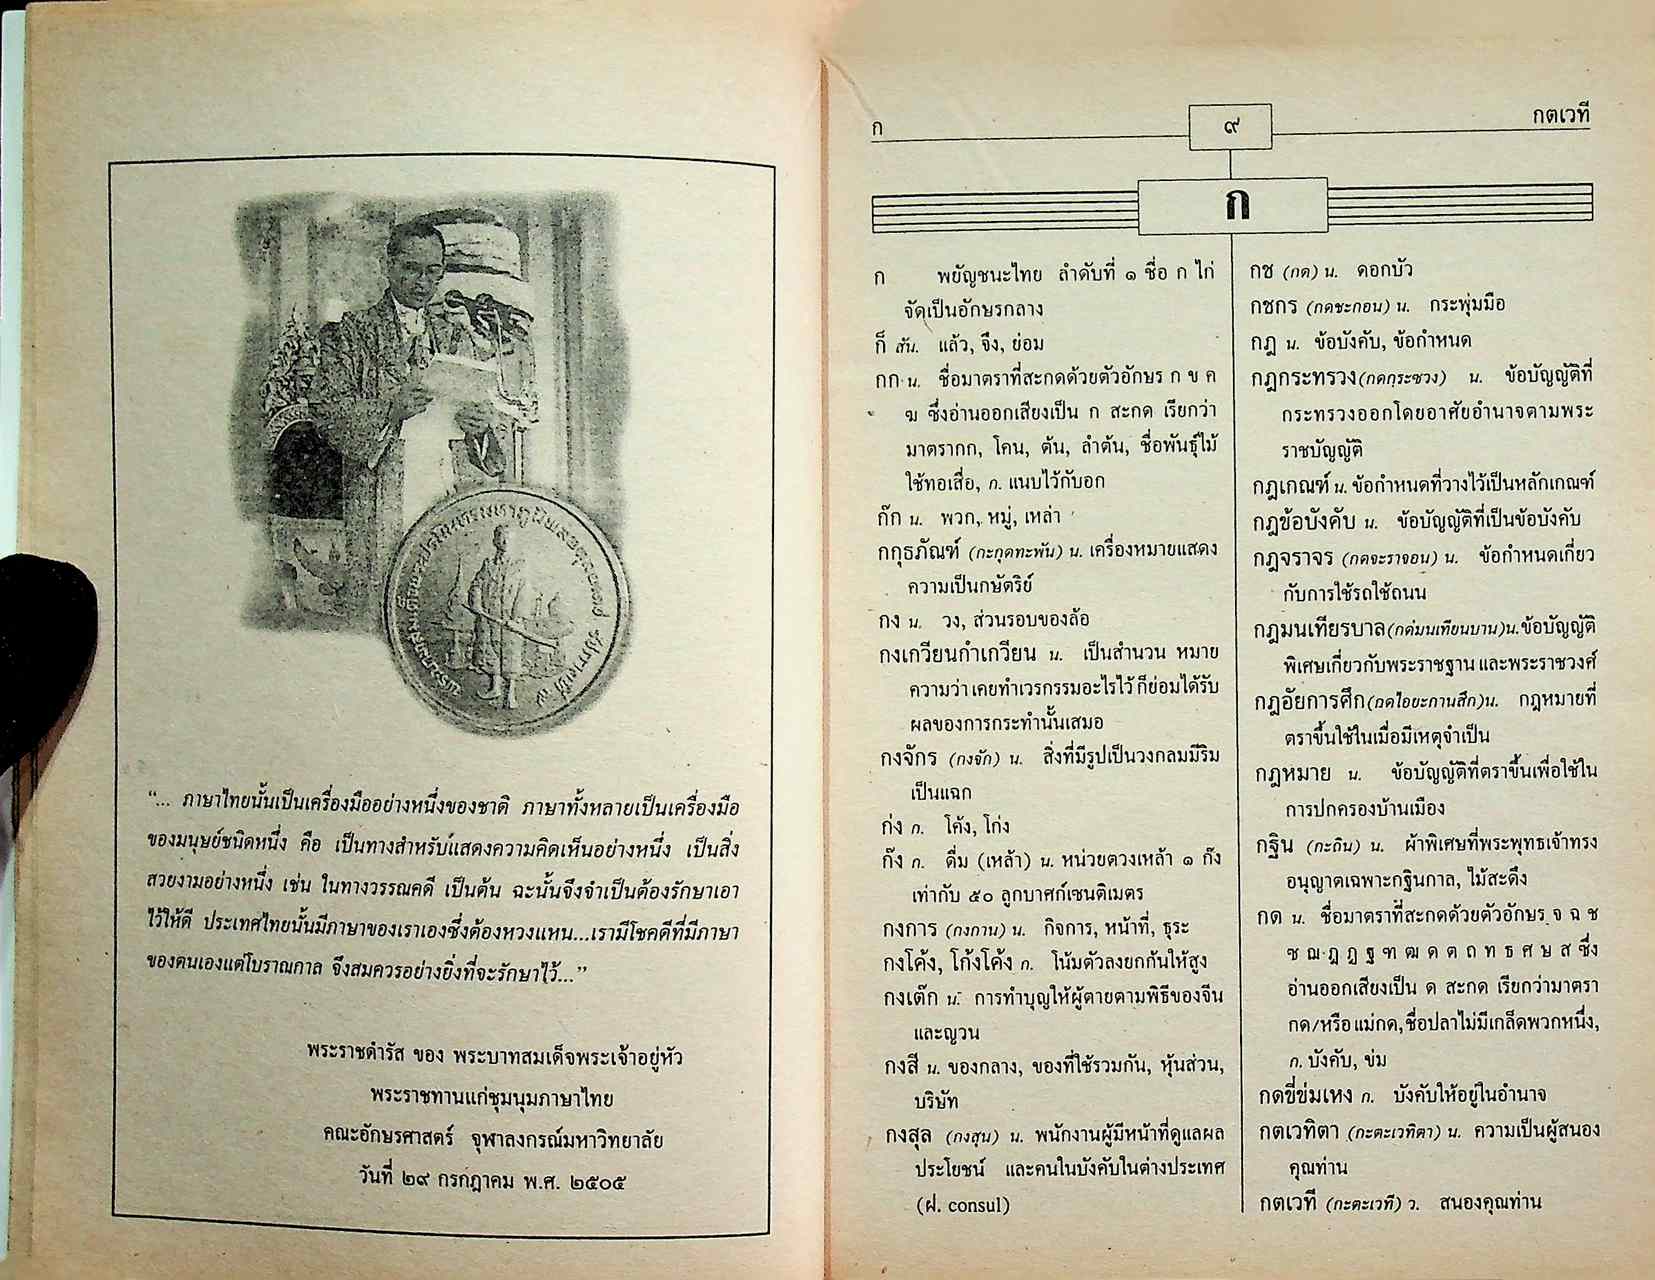 “... ภาษาไทยนั้นเป็นเครื่องมืออย่างหนึ่งของชาติ ภาษาทั้งหลายเป็นเครื่องมือ
ของมนุษย์ชนิดหนึ่ง คือ เป็นทางสำหรับแสดงความคิดเห็นอย่างหนึ่ง เป็นสิ่ง
สวยงามอย่างหนึ่ง เช่น ในทางวรรณคดี เป็นต้น ฉะนั้นจึงจำเป็นต้องรักษาเอา
ไว้ให้ดี ประเทศไทยนั้นมีภาษาของเราเองซึ่งต้องหวงแหน...เรามีโชคดีที่มีภาษา
ของตนเองแต่โบราณกาล จึงสมควรอย่างยิ่งที่จะรักษาไว้...”
พระราชดำรัส ของ พระบาทสมเด็จพระเจ้าอยู่หัว
พระราชทานแก่ชุมนุมภาษาไทย
คณะอักษรศาสตร์ จุฬาลงกรณ์มหาวิทยาลัย
วันที่ ๒๙ กรกฎาคม พ.ศ. ๒๕๐๕
ก ๙ กตเวที
ก
ก พยัญชนะไทย ลำดับที่ ๑ ชื่อ ก ไก่
จัดเป็นอักษรกลาง
ก็ สัน. แล้ว, จึง, ย่อม
กก น. ชื่อมาตราที่สะกดด้วยตัวอักษร ก ข ค
ฆ ซึ่งอ่านออกเสียงเป็น ก สะกด เรียกว่า
มาตรากก, โคน, ต้น, ลำต้น, ชื่อพันธุ์ไม้
ใช้ทอเสื่อ, ก. แนบไว้กับอก
ก๊ก น. พวก, หมู่, เหล่า
กกุธภัณฑ์ (กะกุดทะพัน) น. เครื่องหมายแสดง
ความเป็นกษัตริย์
กง น. วง, ส่วนรอบของล้อ
กงเกวียนกำเกวียน น. เป็นสำนวน หมาย
ความว่า เคยทำเวรกรรมอะไรไว้ ก็ย่อมได้รับ
ผลของการกระทำนั้นเสมอ
กงจักร (กงจัก) น. สิ่งที่มีรูปเป็นวงกลมมีริม
เป็นแฉก
ก่ง ก. โค้ง, โก่ง
ก๊ง ก. ดื่ม (เหล้า) น. หน่วยตวงเหล้า ๑ ก๊ง
เท่ากับ ๕๐ ลูกบาศก์เซนติเมตร
กงการ (กงกาน) น. กิจการ, หน้าที่, ธุระ
กงโค้ง, โก้งโค้ง ก. โน้มตัวลงยกก้นให้สูง
กงเต๊ก น. การทำบุญให้ผู้ตายตามพิธีของจีน
และญวน
กงสี น. ของกลาง, ของที่ใช้รวมกัน, หุ้นส่วน,
บริษัท
กงสุล (กงสุน) น. พนักงานผู้มีหน้าที่ดูแลผล
ประโยชน์ และคนในบังคับในต่างประเทศ
(ฝ. consul)
กช (กด) น. ดอกบัว
กชกร (กดชะกอน) น. กระพุ่มมือ
กฎ น. ข้อบังคับ, ข้อกำหนด
กฎกระทรวง(กดกฺระซวง) น. ข้อบัญญัติที่
กระทรวงออกโดยอาศัยอำนาจตามพระ
ราชบัญญัติ
กฎเกณฑ์ น. ข้อกำหนดที่วางไว้เป็นหลักเกณฑ์
กฎข้อบังคับ น. ข้อบัญญัติที่เป็นข้อบังคับ
กฎจราจร (กดจะราจอน) น. ข้อกำหนดเกี่ยว
กับการใช้รถใช้ถนน
กฎมนเทียรบาล(กดมนเทียนบาน)น.ข้อบัญญัติ
พิเศษเกี่ยวกับพระราชฐาน และพระราชวงศ์
กฎอัยการศึก(กดไอยะกานสึก)น. กฎหมายที่
ตราขึ้นใช้ในเมื่อมีเหตุจำเป็น
กฎหมาย น. ข้อบัญญัติที่ตราขึ้นเพื่อใช้ใน
การปกครองบ้านเมือง
กฐิน (กะถิน) น. ผ้าพิเศษที่พระพุทธเจ้าทรง
อนุญาตเฉพาะกฐินกาล, ไม้สะดึง
กด น. ชื่อมาตราที่สะกดด้วยตัวอักษร จ ฉ ช
ซ ฌ ฎ ฏ ฐ ฑ ฒ ด ต ถ ท ธ ศ ษ ส ซึ่ง
อ่านออกเสียงเป็น ด สะกด เรียกว่ามาตรา
กด/หรือ แม่กด, ชื่อปลาไม่มีเกล็ดพวกหนึ่ง,
ก. บังคับ, ข่ม
กดขี่ข่มเหง ก. บังคับให้อยู่ในอำนาจ
กตเวทิตา (กะตะเวทิตา) น. ความเป็นผู้สนอง
คุณท่าน
กตเวที (กะตะเวที) ว. สนองคุณท่าน